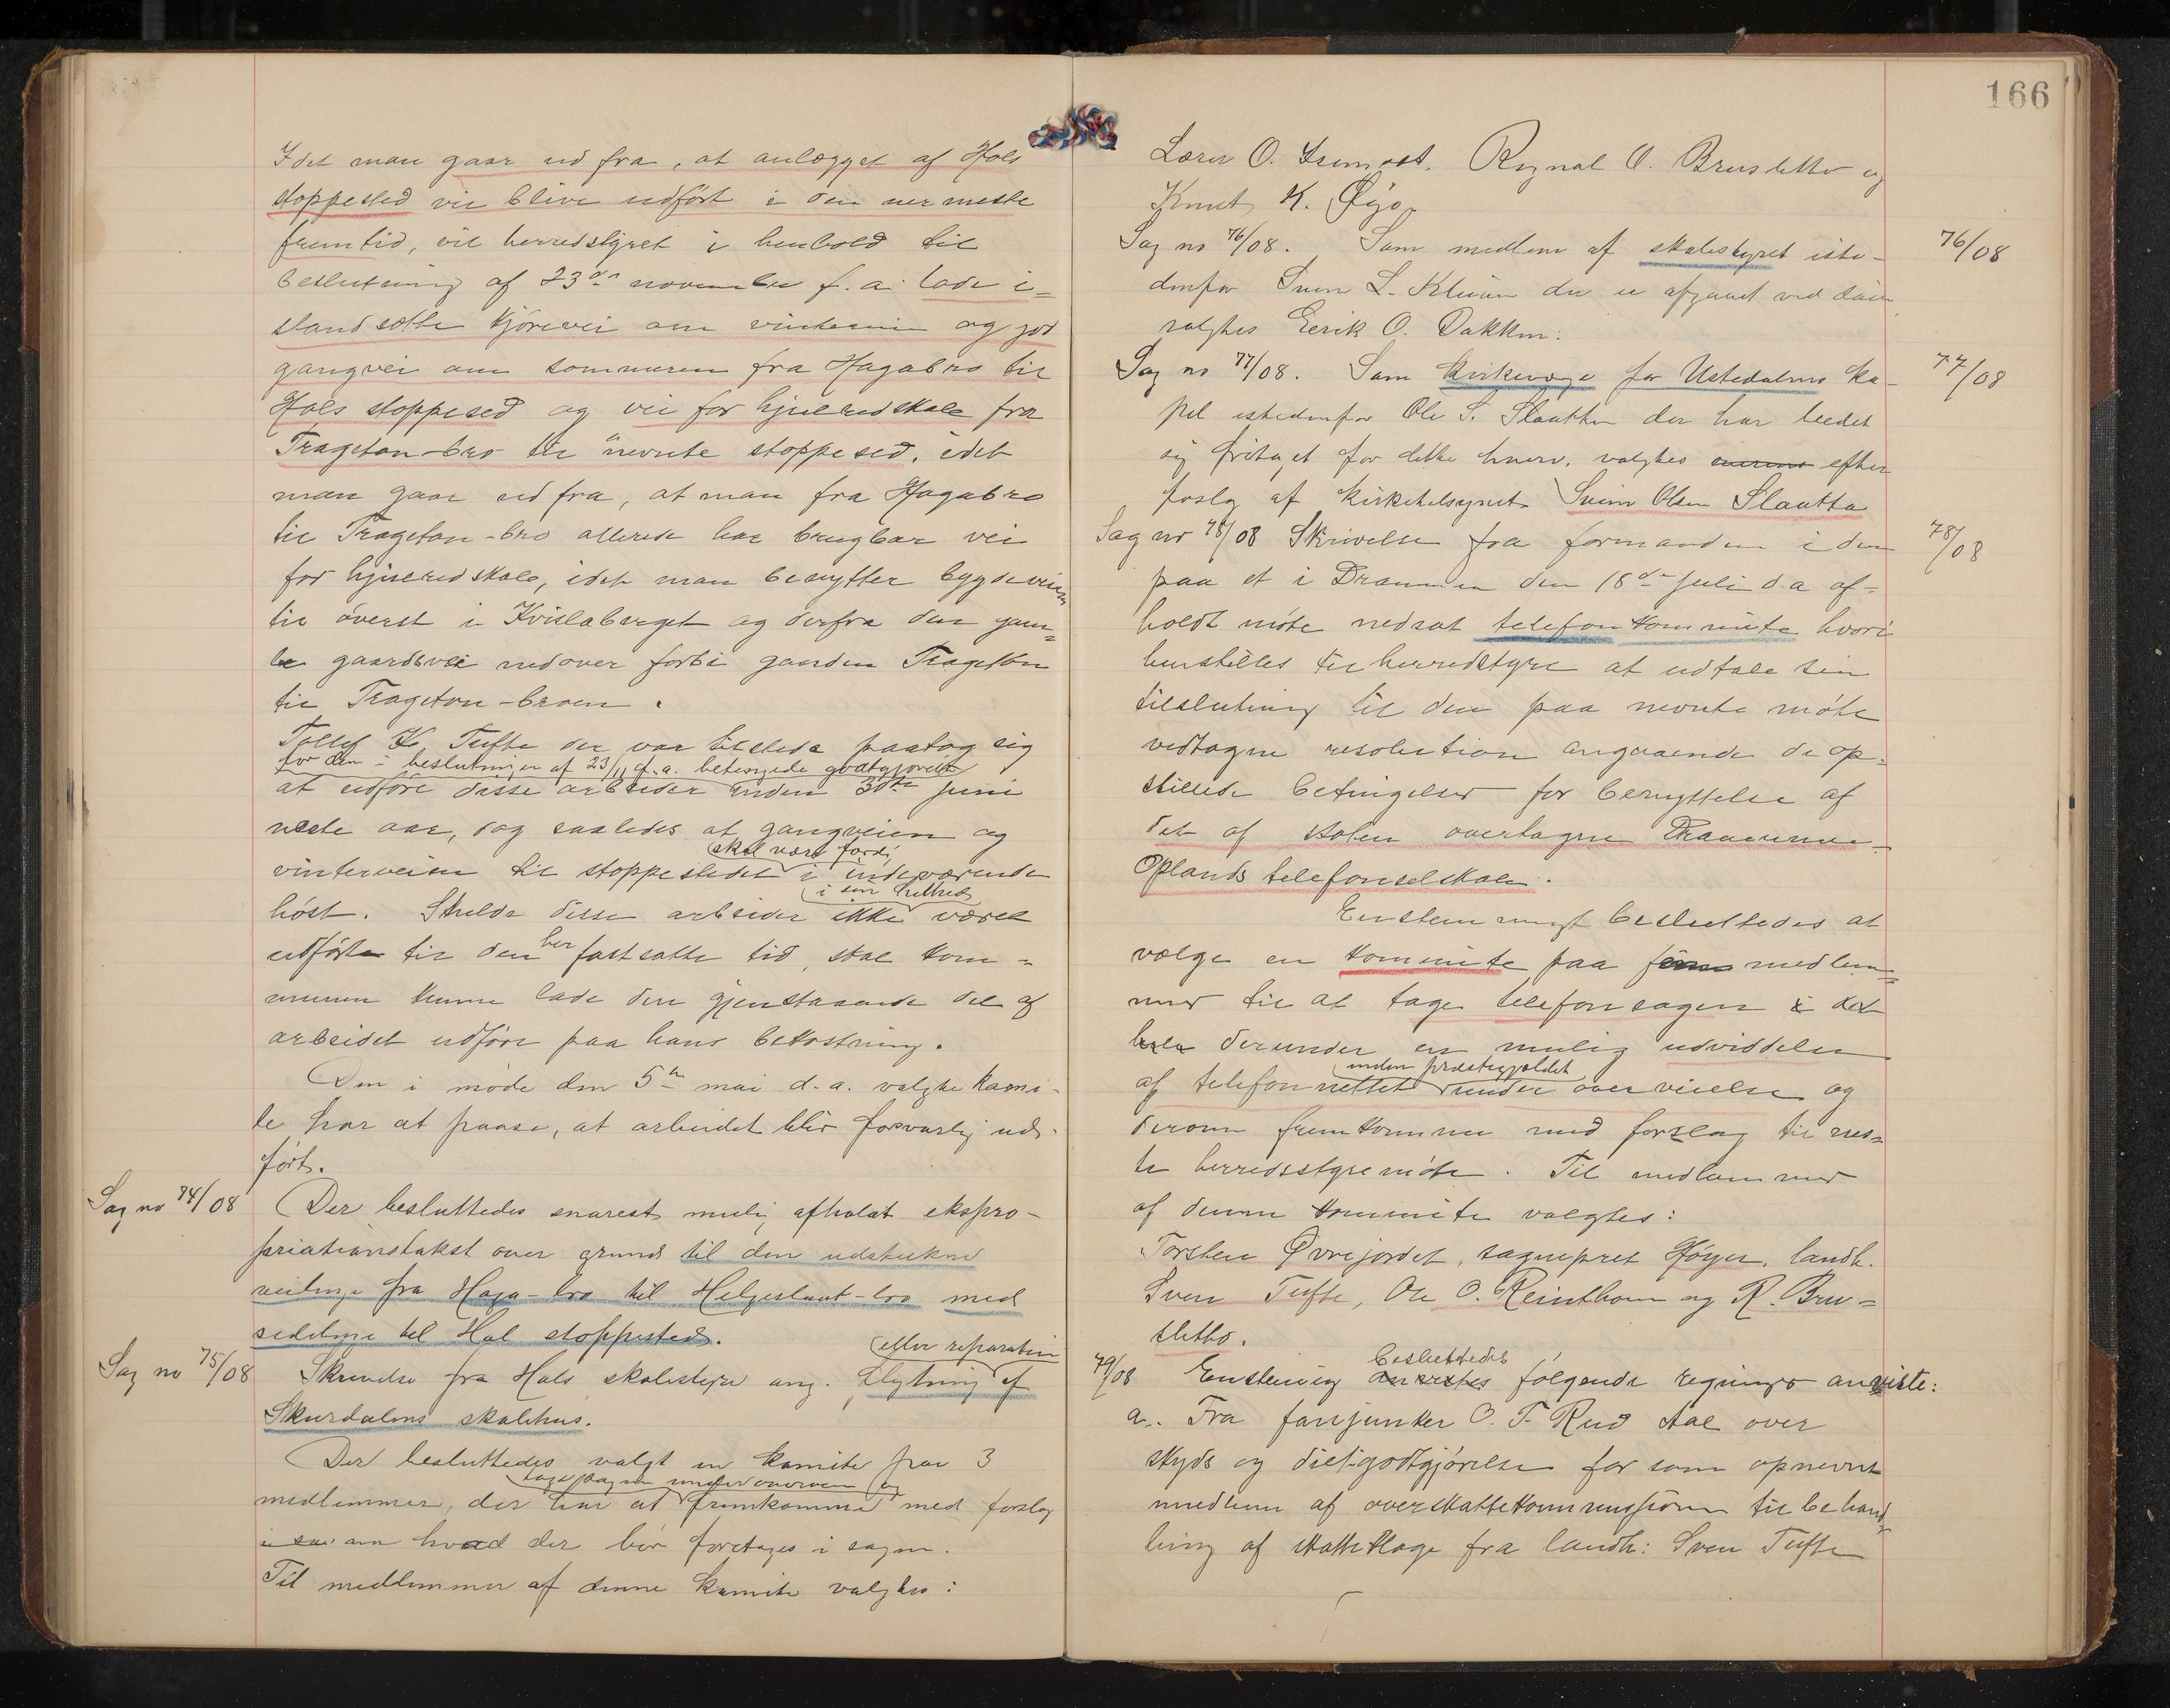 Idet man gaar ud fra, at anlægget af Hols
stoppested vil blive udført i den nermeste
fremtid, vil herredstyret i henhold til
beslutning af 23de november f. a. lade i-
standsette kjørevei om vinteren og god
gangvei om sommeren fra Hagabro til
Hols stoppesed og vei for hjulredskab fra
Trageton-bro til nevnte stoppesed, idet
man gaar ud fra, at man fra Hagabro
til Trageton-bro allerede har brugbar vei
for hjulredskab, idet man benytter bygdeveien
til øverst i Kvislaberget og derfra den gam-
le gaardsvei nedover forbi gaarden Trageton
til Trageton-broen.
Tollef K. Tufte der var tilstede paatog sig
for den i beslutningen af 23/11 f.a. betingede godtgjørelse
at udføre disse arbeider inden 30te juni
neste aar, dog saaledes at gangveien og
skal være færdi
vinterveien til stoppestedet i indeværende
i sin helhed
høst. Skulde disse arbeider ikke være
udførte til den her fastsatte tid, skal kom-
munen kunne lade den gjenstaaende del af
arbeidet udføre paa hans bekostning.
Den i møde den 5te mai d. a. valgte komi-
te har at paase, at arbeidet blir forsvarlig ud-
ført.
Sag no 74/08 Der besluttedes snarest mulig afholdt ekspro-
priationstakst over grund til den udstukne
veilinje fra Haga-bro til Helgeslaat-bro med
sidelinje til Hol stoppested.
eller reparation
Sag no 75/08 Skrivelse fra Hols skolestyre ang. flytning af
Skurdalens skolehus.
Der besluttedes valgt en komite paa 3
tage sagen under overveielse og
medlemmer, der har at fremkomme med forslag
om hvad der bør foretages i sagen.
Til medlemmer af denne komite valgtes:
166
Lærer O. Regnal O. Brusletto og
Knut K. Øyo.
Sag no 76/08. Som medlem af skolestyret iste- 76/08
denfor Sven L. der er afgaaet ved døden
valgtes Eerik O. Dokken.
Sag no 77/08. Som kirkeverge for Ustedalens ka- 77/08
pel istedenfor Ole S. Slaatten der har beedet
sig fritaget for dette hverv, valgtes efter
forslg af kirketilsynet Svein Olsen Slaatto
Sag no 78/08 Skrivelse fra formanden i den 78/08
paa et i Drammen den 18de juli d.a. af-
holdt møte nedsat telefonkommite hvori
henstilles til herredstyre at udtale sin
tilslutning til den paa nevnte møte
vedtagne resolution angaaende de op-
stillede betingelser for benyttelse af
det af staten overtagne Drammens-
Oplands telefonselskab.
Enstemmigt besluttedes at
vælge en kommite paa fem medlem-
mer til at tage telefonsagen i det
hele derunder en mulig udviddelse
inden præstegjældet
af telefonnettet under overveielse og
derom fremkomme med forslag til nes-
te herredsstyremøte. Til medlemmer
af denne kommite valgtes:
Torsten Øvrejordet, sogneprest Høyer, landh.
Sven Tufte, Ole O. Reinthon og R. Bru-
sletto.
besluttedes
79/08 Enstemig anvistes følgende regninger anviste:
a. Fra fanejunker O. T. Rud Aal over
skyds og dietgodtgjørelse for som opnevnt
medlem af overskattekommissionen til behand-
ling af skatteklage fra landh: Sven Tufte